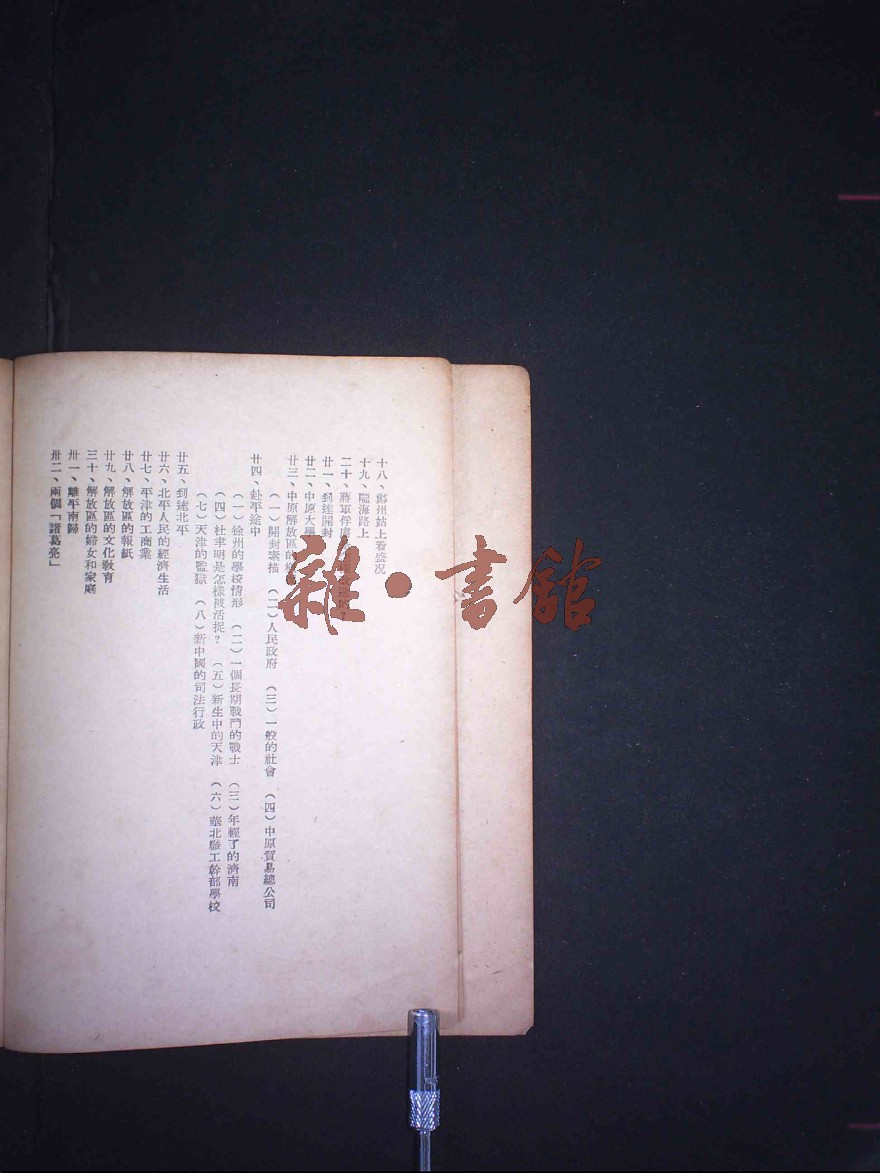 十八、鄭州站上看盛況
十九、隴海路上
二十、將軍俘虜
廿一、到達開封
廿二、中原大學
廿三、中原解放區的
（一）開封素描　（二）人民政府　（三）一般的社會　（四）中原貿易總公司
廿四、赴平途中
（一）徐州的學校情形　（二）一個長期戰鬥的戰士　（三）年輕了的濟南
（四）杜聿明是怎樣被活捉？　（五）新生中的天津　（六）華北職工幹部學校
（七）天津的監獄　（八）新中國的司法行政
廿五、到達北平
廿六、北平人民的經濟生活
廿七、平津的工商業
廿八、解放區的報紙
廿九、解放區的文化教育
三十、解放區的婦女和家庭
卅一、離平南歸
卅二、兩個「諸葛亮」
雜·書館